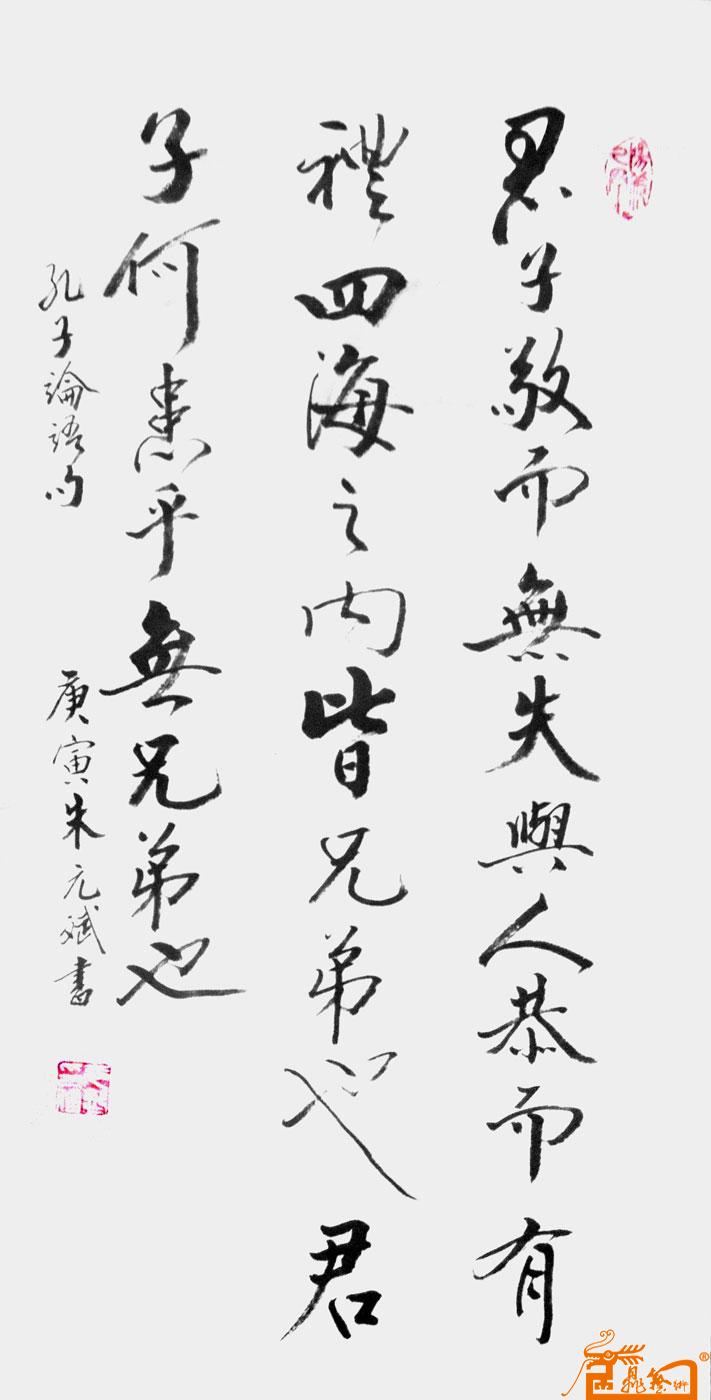 君子敬而無失與人恭而有
禮四海之内皆兄弟也君
子何患乎無兄弟也
孔子論語句
庚寅朱元斌書